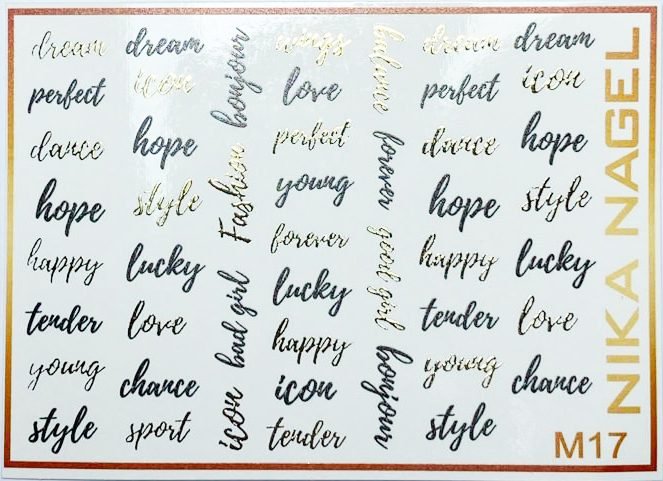 dream
perfect
dance
hope
happy
tender
young
style
dream
icon
hope
style
lucky
love
chance
sport
bonjour
Fashion
bad girl
icon
wings
love
perfect
young
forever
lucky
happy
icon
tender
balance
forever
good girl
bonjour
dream
perfect
dance
hope
happy
tender
young
style
dream
icon
hope
style
lucky
love
chance
NIKA NAGEL
M17